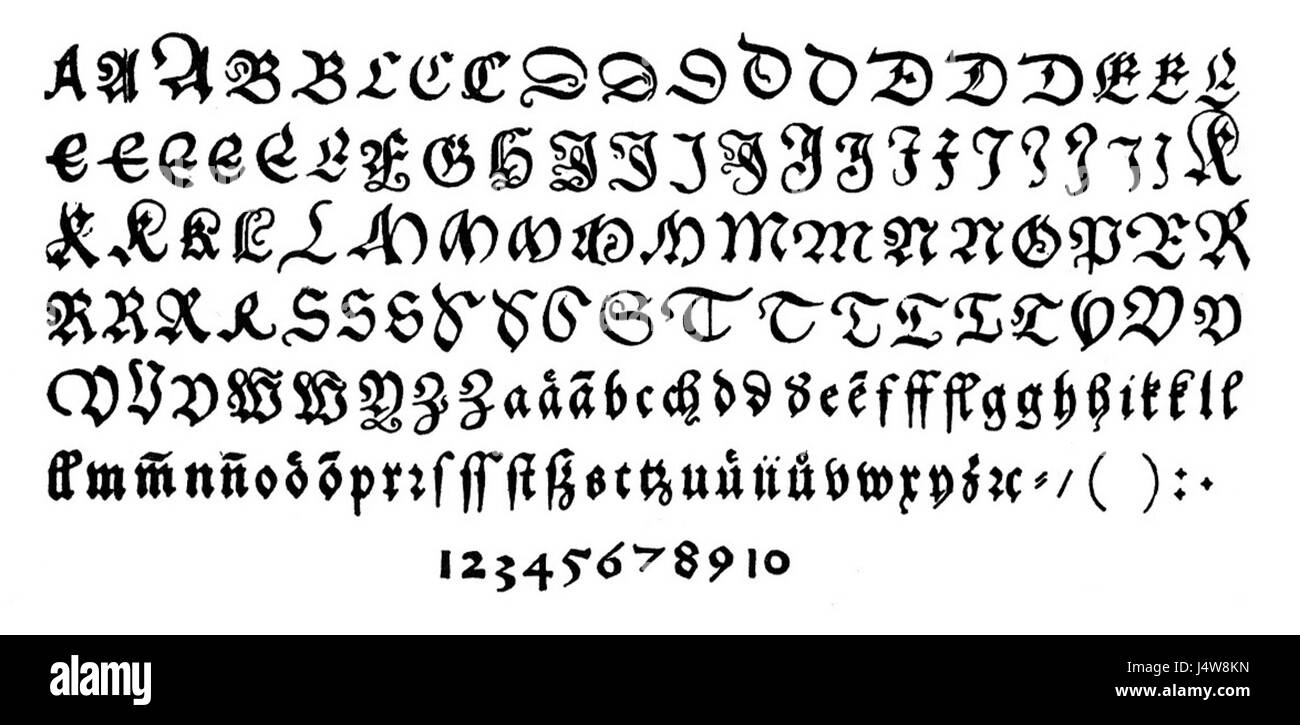 A A A B B C C C D D D D D D D D E E E
E E E E E E F G H I I I I I I I I I I I I I K
K K K L L M M M M M M M N N O P P R
R R R R S S S S S S S T T T T T O V V
V V V W W Y Z Z a å ã b c ch d d d e ẽ f ff fl g g h h i k k l l
fl m m̃ n ñ o o̊ õ p r ꝛ ſ ſſ ſt ß s t tz u ů ü ů v w x y z ꝛc ⸗ / ( ) : .
1 2 3 4 5 6 7 8 9 10
alamy
Image ID: J4W8KN
www.alamy.com